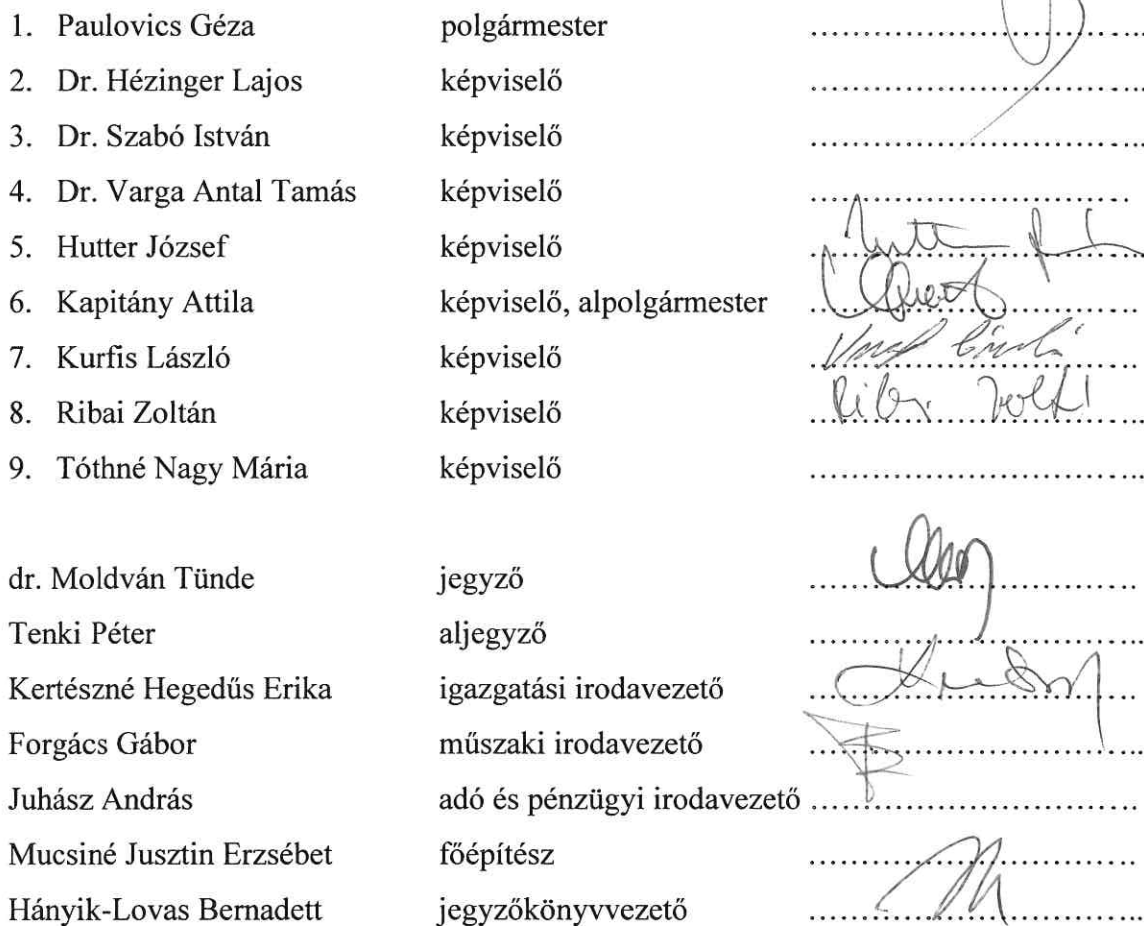 1. Paulovics Géza polgármester ........................................
2. Dr. Hézinger Lajos képviselő ........................................
3. Dr. Szabó István képviselő ........................................
4. Dr. Varga Antal Tamás képviselő ........................................
5. Hutter József képviselő ........................................
6. Kapitány Attila képviselő, alpolgármester ........................................
7. Kurfis László képviselő ........................................
8. Ribai Zoltán képviselő ........................................
9. Tóthné Nagy Mária képviselő ........................................
dr. Moldván Tünde jegyző ........................................
Tenki Péter aljegyző ........................................
Kertészné Hegedűs Erika igazgatási irodavezető ........................................
Forgács Gábor műszaki irodavezető ........................................
Juhász András adó és pénzügyi irodavezető ........................................
Mucsiné Jusztin Erzsébet főépítész ........................................
Hányik-Lovas Bernadett jegyzőkönyvvezető ........................................